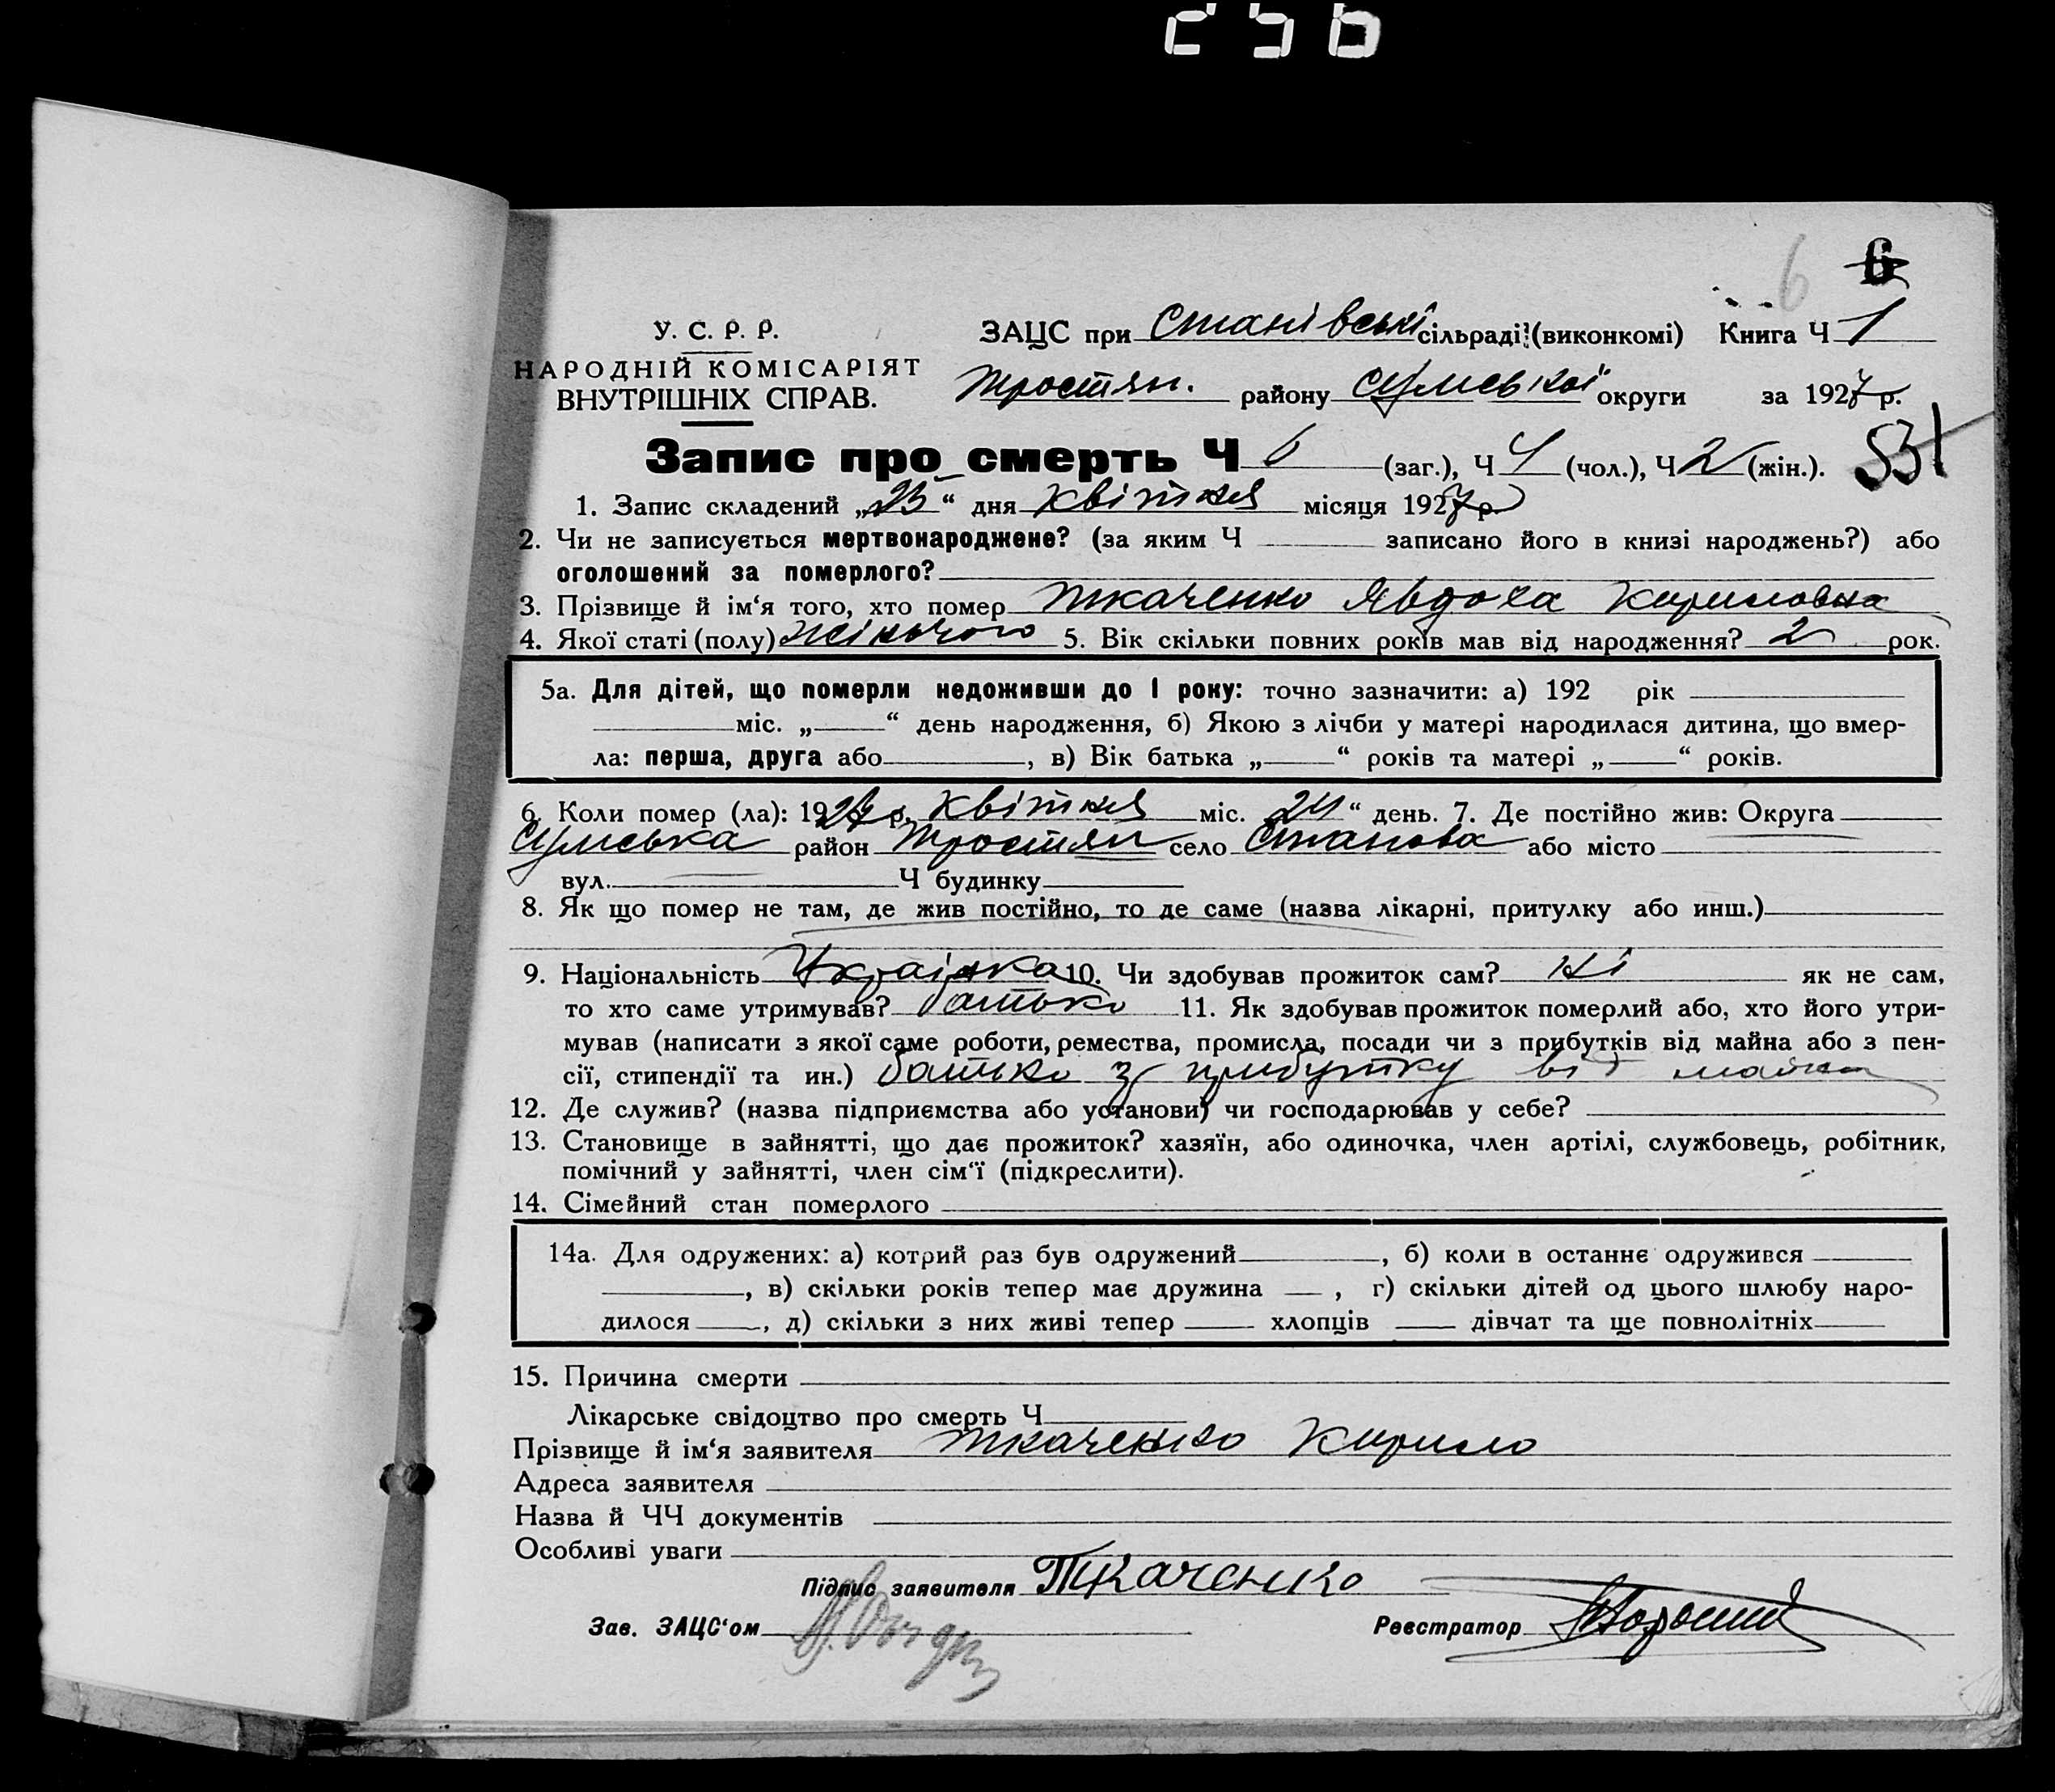 256
6 6
У. С. Р. Р. ЗАЦС при Станівські сільраді (виконкомі) Книга Ч 1
НАРОДНІЙ КОМІСАРІЯТ
ВНУТРІШНІХ СПРАВ. Тростян. району Сумської округи за 1927 р.
Запис про смерть Ч 6 (заг.), Ч 4 (чол.), Ч 2 (жін.). 531
1. Запис складений „23“ дня квітня місяця 1927 р.
2. Чи не записується мертвонароджене? (за яким Ч записано його в книзі народжень?) або
оголошений за померлого?
3. Прізвище й ім‘я того, хто помер Ткаченко Явдоха Кириловна
4. Якої статі (полу) жіночого 5. Вік скільки повних років мав від народження? 2 рок.
5а. Для дітей, що померли недоживши до 1 року: точно зазначити: а) 192 рік
міс. „ “ день народження, б) Якою з лічби у матері народилася дитина, що вмер-
ла: перша, друга або , в) Вік батька „ “ років та матері „ “ років.
6. Коли помер (ла): 1927 р. квітня міс. „ “ день. 7. Де постійно жив: Округа
Сумська район Тростян село Станова або місто
вул. Ч будинку
8. Як що помер не там, де жив постійно, то де саме (назва лікарні, притулку або инш.)
9. Національність Українка 10. Чи здобував прожиток сам? ні як не сам,
то хто саме утримував? батько 11. Як здобував прожиток померлий або, хто його утри-
мував (написати з якої саме роботи, ремества, промисла, посади чи з прибутків від майна або з пен-
сії, стипендії та ин.) батько з прибутку від майна
12. Де служив? (назва підприємства або установи) чи господарював у себе?
13. Становище в зайнятті, що дає прожиток? хазяїн, або одиночка, член артілі, службовець, робітник,
помічний у зайнятті, член сім‘ї (підкреслити).
14. Сімейний стан померлого
14а. Для одружених: а) котрий раз був одружений , б) коли в останнє одружився
, в) скільки років тепер має дружина , г) скільки дітей од цього шлюбу наро-
дилося , д) скільки з них живі тепер хлопців дівчат та ще повнолітніх
15. Причина смерти
Лікарське свідоцтво про смерть Ч
Прізвище й ім‘я заявителя Ткаченко Кирило
Адреса заявителя
Назва й ЧЧ документів
Особливі уваги
Підпис заявителя Ткаченко
Зав. ЗАЦС‘ом Реєстратор